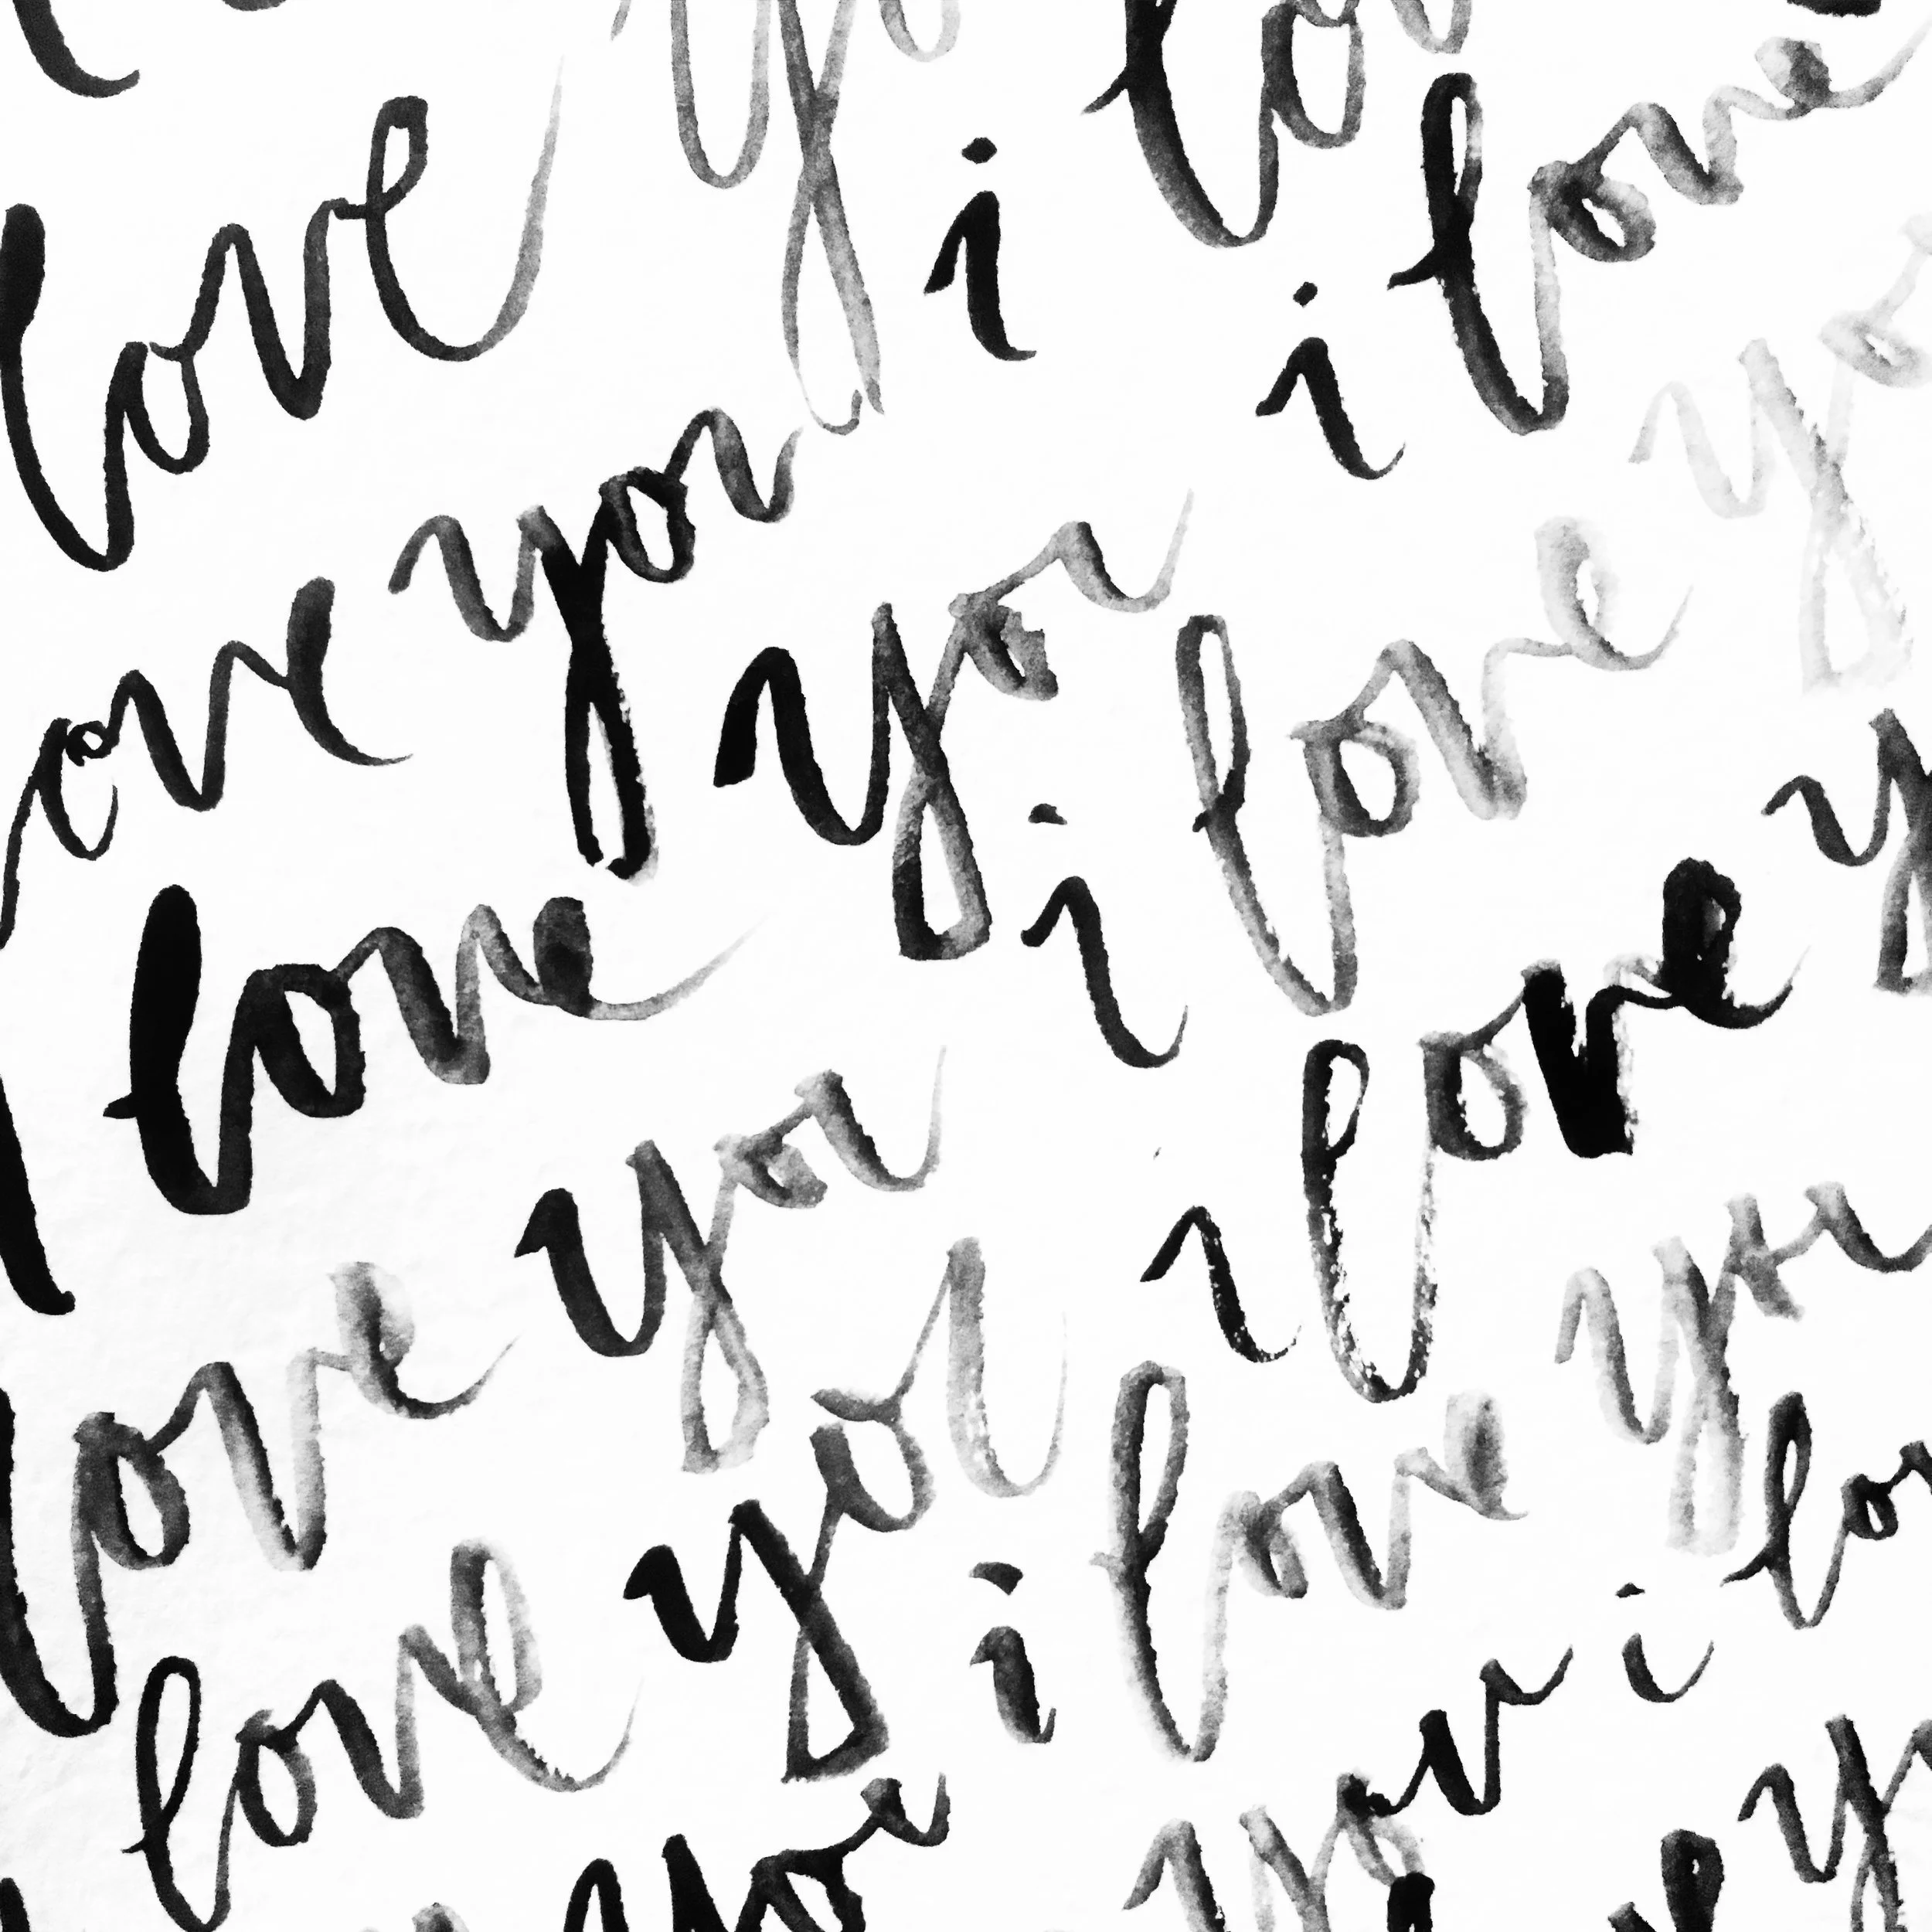 love yo
i lo
i love
love you
i love yo
ove you
i love y
love you
i love you
love you
i love you
love you
i lo
you
you
y